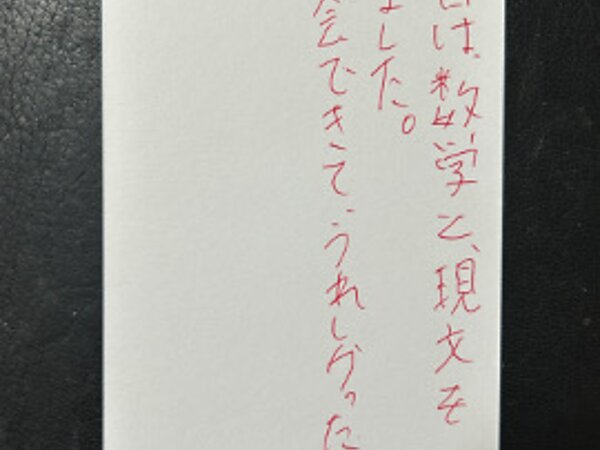 は、数学と、現文を
ました。
会できて、うれしかった